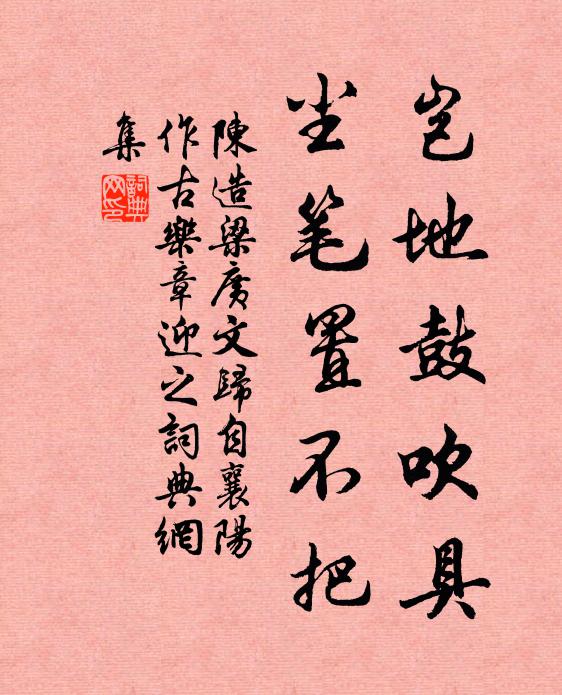 岂地鼓吹具
尘笔置不把
陳造梁廣文歸自襄陽
作古樂章迎之詞典網
集
詞典
网印